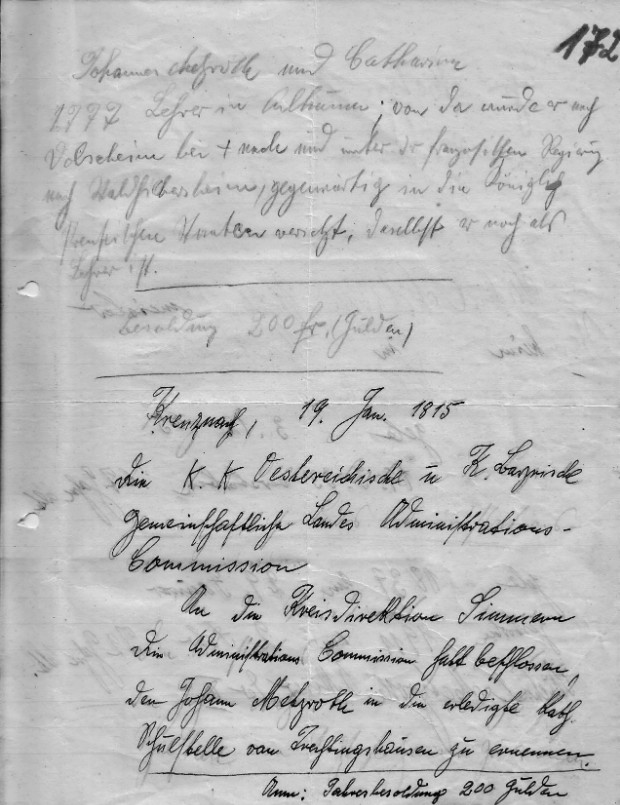 172
Johannes Metzroth und Catharina
1777 Lehrer in ; von da wurde er nach
bei + nach und unter der französischen Regierung
nach Waldhilbersheim, gegenwärtig in die Königlich
preußischen versetzt, daselbst er noch als
Lehrer ist.
Besoldung 200 fr. (Gulden)
Kreuznach, 19. Jan. 1815
Die K. K Oestereichische u K. bayrische
gemeinschaftliche Landes Administrations-
Commission
An die Kreisdirektion Simmern
Die Administrations Commission hatt beschlossen,
den Johann Metzroth in die erledigte kath.
Schulstelle von Trechtingshausen zu ernennen.
Anm: Jahresbesoldung 200 Gulden